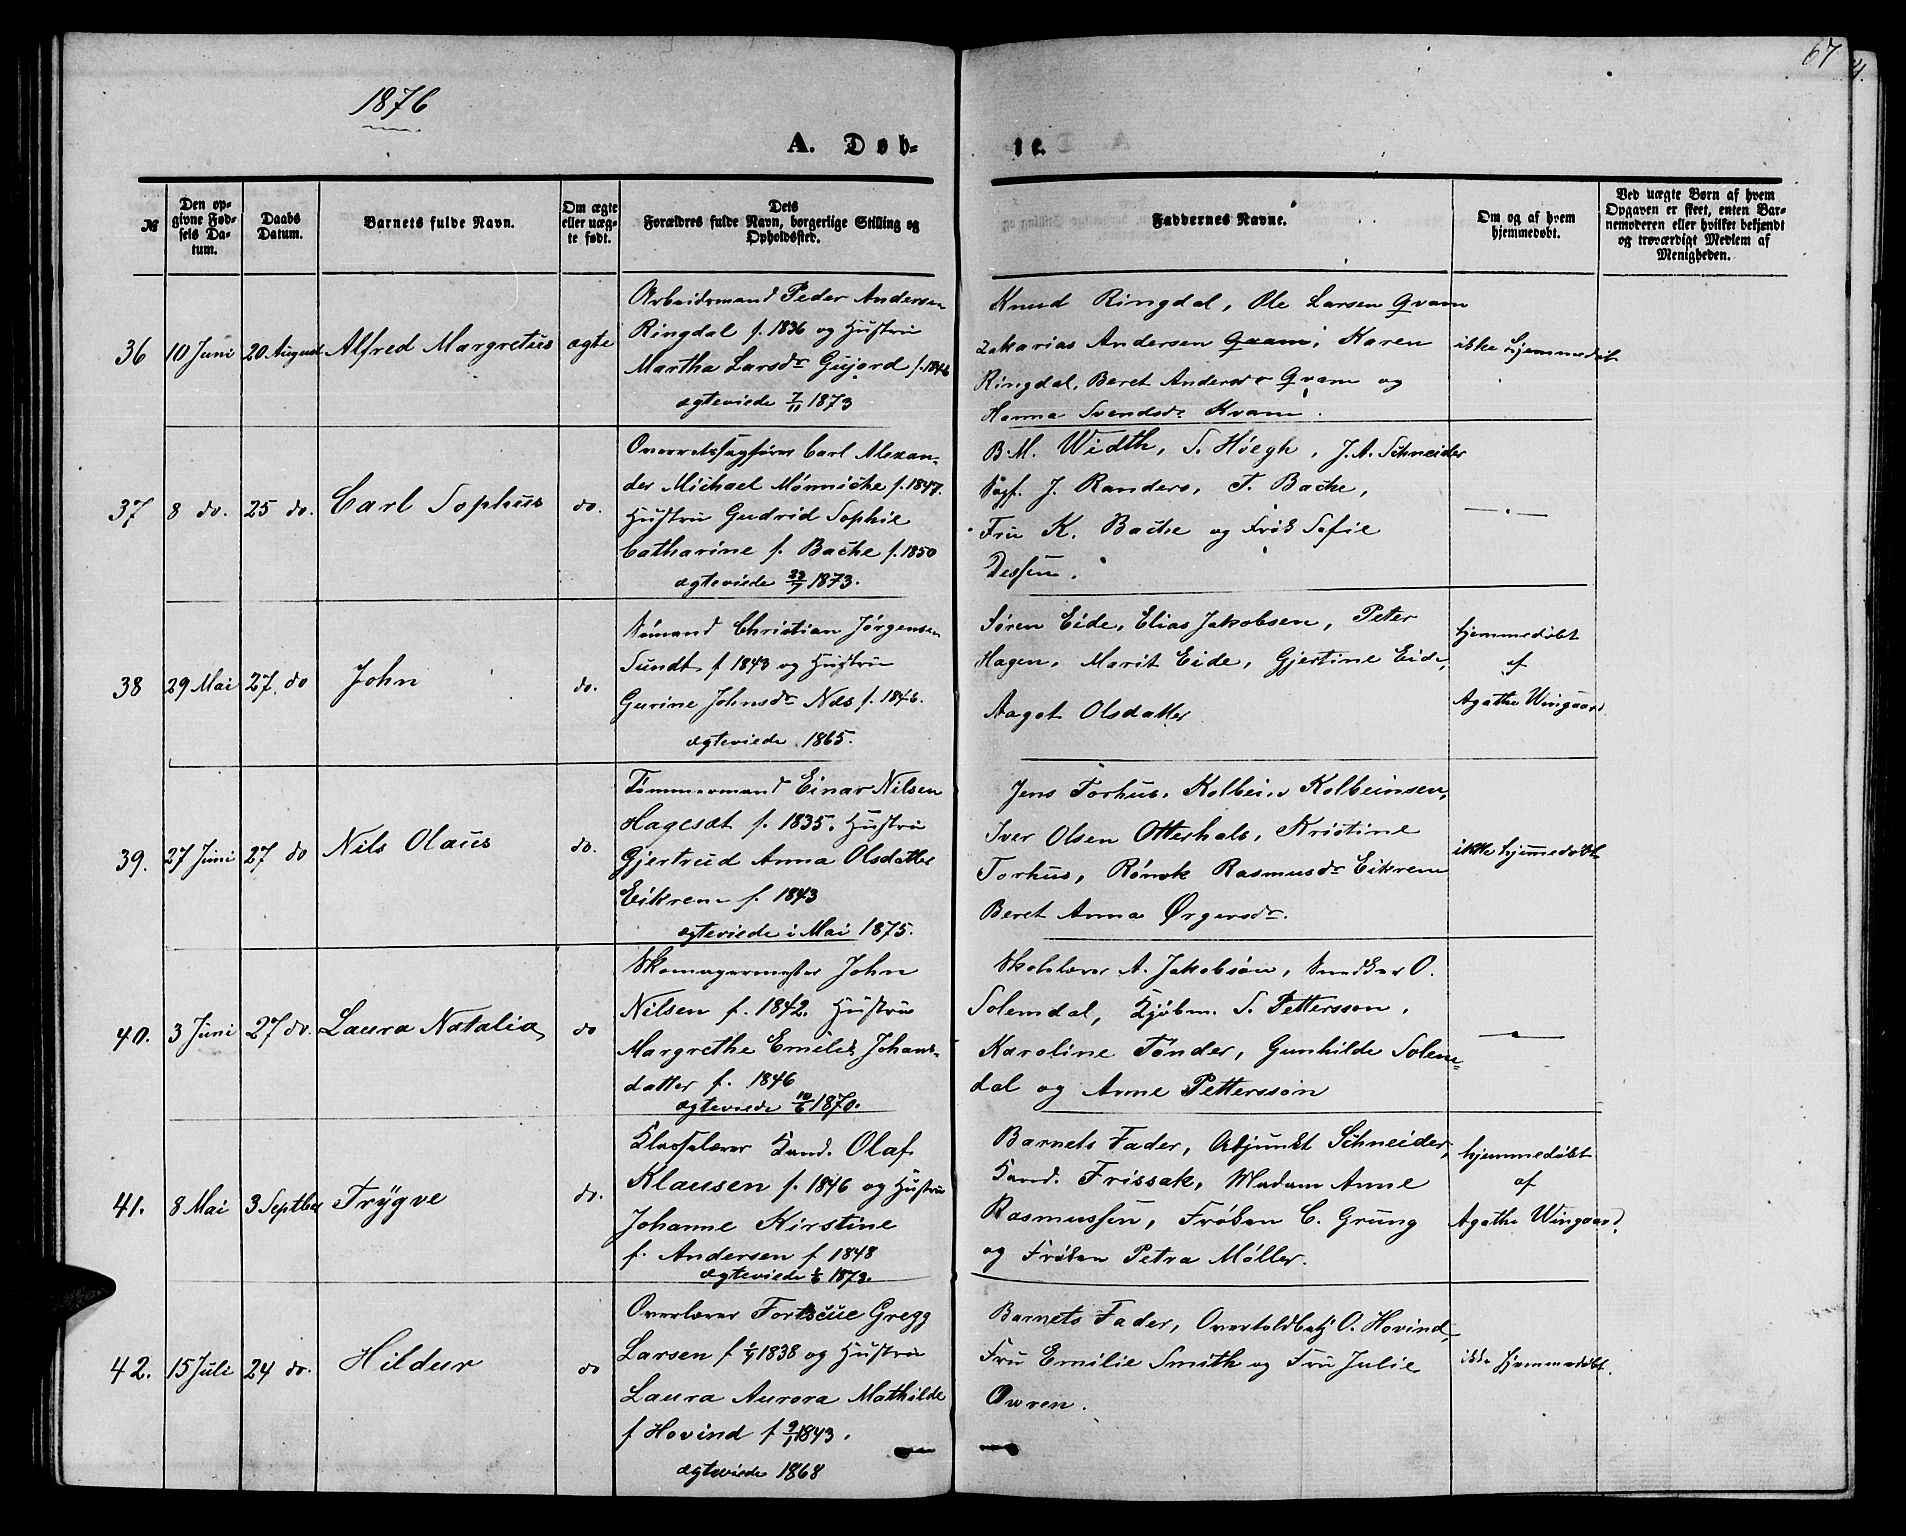 67
1876
A. Døb-
te.
№
Den op-
givne Fød-
sels Da-
tum.
Daabs
Datum.
Barnets fulde Navn.
Om ægte
eller uæg-
te født.
Dets
Forældres fulde Navn, borgerlige Stilling og
Opholdssted.
Faddernes Navne.
Om og af hvem
hjemmedøbt.
Ved uægte Børn af hvem
Opgaven er skeet, enten Bar-
nemoderen eller hvilket bekjendt
og troværdigt Medlem af
Menigheden.
36 10 Juni 20 August Alfred Margretius ægte
Arbeidsmand Peder Andersen
Ringdal f. 1836 og Hustru
Martha Larsdr Gujord f. 1846
ægteviede 7/11 1873
Knud Ringdal, Ole Larsen Qvam
Zakarias Andersen Qvam, Karen
Ringdal, Beret Andersdr Qvam og
Hanna Svendsdr Kvam.
ikke hjemmedøbt
37 8 do. 25 do. Carl Sophus do.
Overretssagfører Carl Alexan-
der Michael Mønniche f. 1847.
Hustru Gudrid Sophie
Catharine f. Bache f. 1850
ægteviede 22/7 1873.
B.M. Width, S. Høegh, J.A. Schneider
Sagf. J. Randers, T. Bache,
Fru K. Bache og Frøk Sofie
Dessen.
— " —
38 29 Mai 27. do John do.
Sømand Christian Jørgensen
Sundt f. 1843 og Hustru
Gurine Johnsdr Næs f. 1846.
ægteviede 1865.
Søren Eide, Elias Jakobsen, Peter
Hagen, Marit Eide, Gjertine Eide,
Aagot Olsdatter
hjemmedøbt
af
Agathe Wingaard.
39. 27 Juni 27 do Nils Olaus do.
Tømmermand Einar Nilsen
Hagesæt f. 1835. Hustru
Gjertrud Anna Olsdatter
Eikrem f. 1843
ægteviede i Mai 1875.
Jens Torhus, Kolbein Kolbeinsen,
Iver Olsen Otterhals, Kristine
Torhus, Rønok Rasmusdr Eikrem
Beret Anna Ørgersdr.
ikke hjemmedøbt
40. 3 Juni 27 do. Laura Natalia do
Skomagermester John
Nilsen f. 1842. Hustru
Margrethe Emilie Johans-
datter f. 1846
ægteviede 10/6 1870.
Skolelærer A. Jakobson, Snedker O.
Solemdal, Kjøbm. S. Pettersson,
Karoline Tønder, Gunhilde Solem-
dal og Anne Pettersson
— " —
41. 8 Mai 3 Septber Trygve do.
Klasselærer Kand. Olaf
Klausen f. 1846 og Hustru
Johanne Kirstine
f. Andersen f 1848
Barnets Fader, Adjunkt Schneider,
Kand. Frissak, Madam Anne
Rasmussen, Frøken C. Grung
og Frøken Petra Møller.
hjemmedøbt
af
Agathe Wingaard.
42. 15 Juli 24 do. Hildur do
Overlærer Fortscue Gregg
Larsen f 1838 og Hustru
Laura Aurora Mathilde
f Hovind f 9/1 1843.
ægteviede 1868
Barnets Fader, Overtoldbetj O. Hovind,
Fru Emilie Smith og Fru Julie
Owren.
ikke hjemmedøbt.